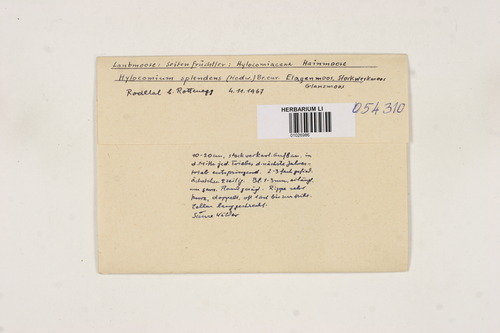 Laubmoose: Seitenfrüchtler: Hylocomiaceae Hainmoose
Hylocomium splendens (Hedw.) Br. eur. Etagenmoos, Stockwerkmoos
Glanzmoos
Rodltal b. Rottenegg 4.11.1967
HERBARIUM LI
01026986
054310
10-20 cm, stockwerkart. Aufbau, in
d. Mitte jed. Triebes d. nächste Jahres-
trieb entspringend. 2-3 fach gefied.
Rippe sehr
kurz, doppelt, oft fast bis zur Mitte.
Zellen langgestreckt.
Wälder